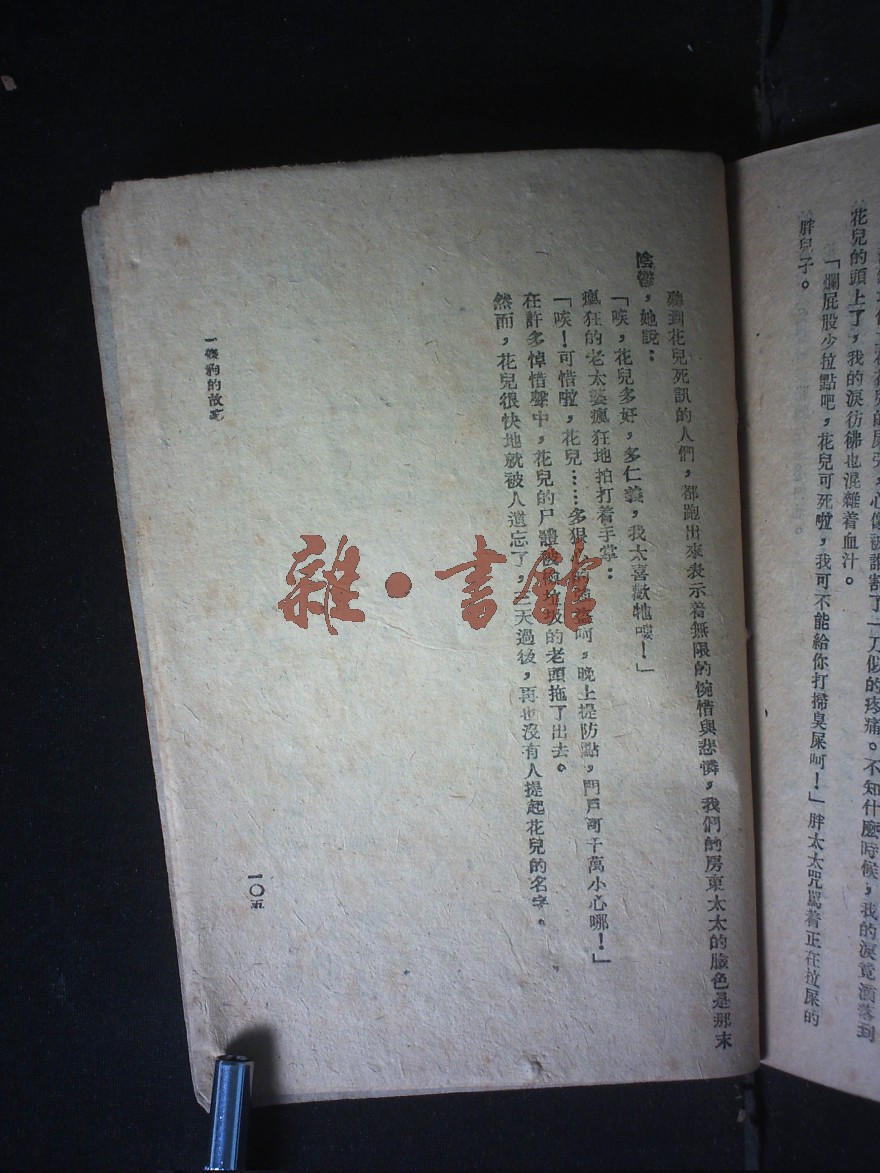 花兒的頭上了，我的淚彷彿也混雜着血汁。
「爛屁股少拉點吧，花兒可死啦，我可不能給你打掃臭屎呵！」胖太太咒罵着正在拉屎的
胖兒子。
聽到花兒死訊的人們，都跑出來表示着無限的惋惜與悲憐，我們的房東太太的臉色是那末
陰鬱，她說：
「唉，花兒多好，多仁義，我太喜歡牠嘍！」
瘋狂的老太婆瘋狂地拍打着手掌：
「唉！可惜啦，花兒……多狠 呵，晚上提防點，門戶可千萬小心哪！」
在許多悼惜聲中，花兒的尸體被 垃圾的老頭拖了出去。
然而，花兒很快地就被人遺忘了，三天過後，再也沒有人提起花兒的名字。
狗的故事
一〇五
雜·書館